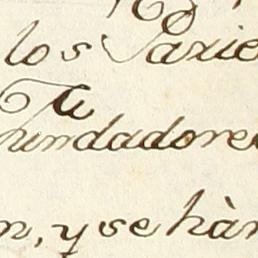 los Parie
Fundadores
n, y se hàn